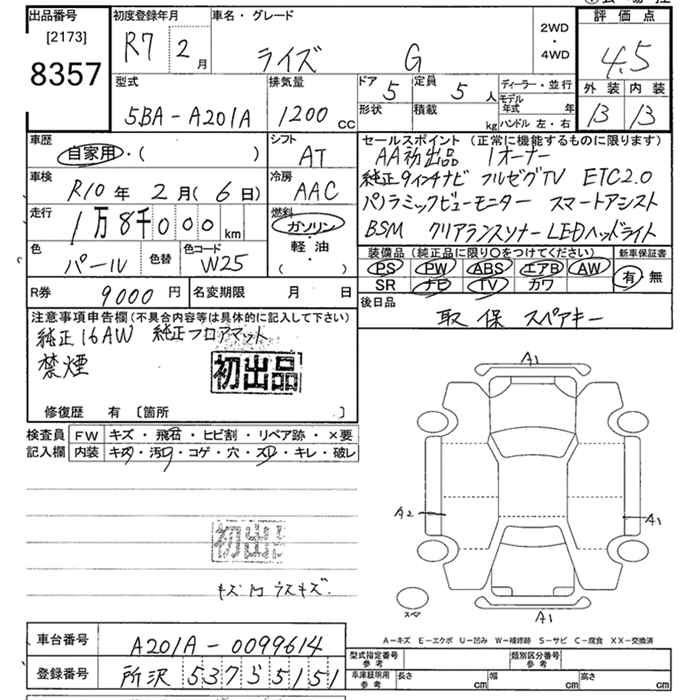 出品番号 初度登録年月 車名・グレード 評価点
[2173] R7 2月 ライズ G 2WD・4WD 4.5
8357
型式 排気量 ドア 5 定員 5人 ディーラー・並行 外装 内装
5BA-A201A 1200cc 形状 積載 kg モデル年式 年 B B
ハンドル 左・右
車歴 シフト セールスポイント (正常に機能するものに限ります)
自家用・( ) AT AA初出品 1オーナー
車検 冷房 純正9インチナビ フルセグTV ETC2.0
R10年 2月(6日) AAC パノラミックビューモニター スマートアシスト
走行 燃料 BSM クリアランスソナー LEDヘッドライト
1万8千000km ガソリン・軽油・( )
色 色替 色コード 装備品 (純正品に限り○をつけてください) 新車保証書
パール W25 PS PW ABS エアB AW 有・無
SR ナビ TV カワ
R券 9000円 名変期限 月 日 後日品
取 保 スペアキー
注意事項申告欄(不具合内容等は具体的に記入して下さい)
純正16AW 純正フロアマット
禁煙
初出品
修復歴 有 〔箇所 〕
検査員 FW キズ・飛石・ヒビ割・リペア跡・×要
記入欄 内装 キズ・汚れ・コゲ・穴・スレ・キレ・破レ
A1
A2 A1
初出品
スペア
A1
A-キズ E-エクボ U-凹み W-補修跡 S-サビ C-腐食 XX-交換済
車台番号 A201A-0099614 型式指定番号 参考 類別区分番号 参考
登録番号 所沢 537 5 5151 車庫証明用 参考 長さ cm 幅 cm 高さ cm